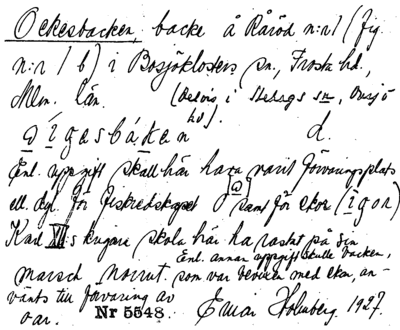 Ockesbacken, backe å Råröd n:r 1 (fig.
n:r 1 b) i Bosjöklosters sn, Frosta hd,
Mlm. län. (Delvis i Stehags sn, Onsjö
hd).
d.
Enl. uppgift skall här ha varit förvaringsplats
ell. dyl. för fiskredskapet samt för ekor (ı̄gor)
Karl XII:s krigare skola här ha rastat på sin
marsch norrut. Enl. annan uppgift skulle backen,
som var beväxt med ekar, an-
vänts till förvaring av
Nr 5548. Einar Holmberg 1927.